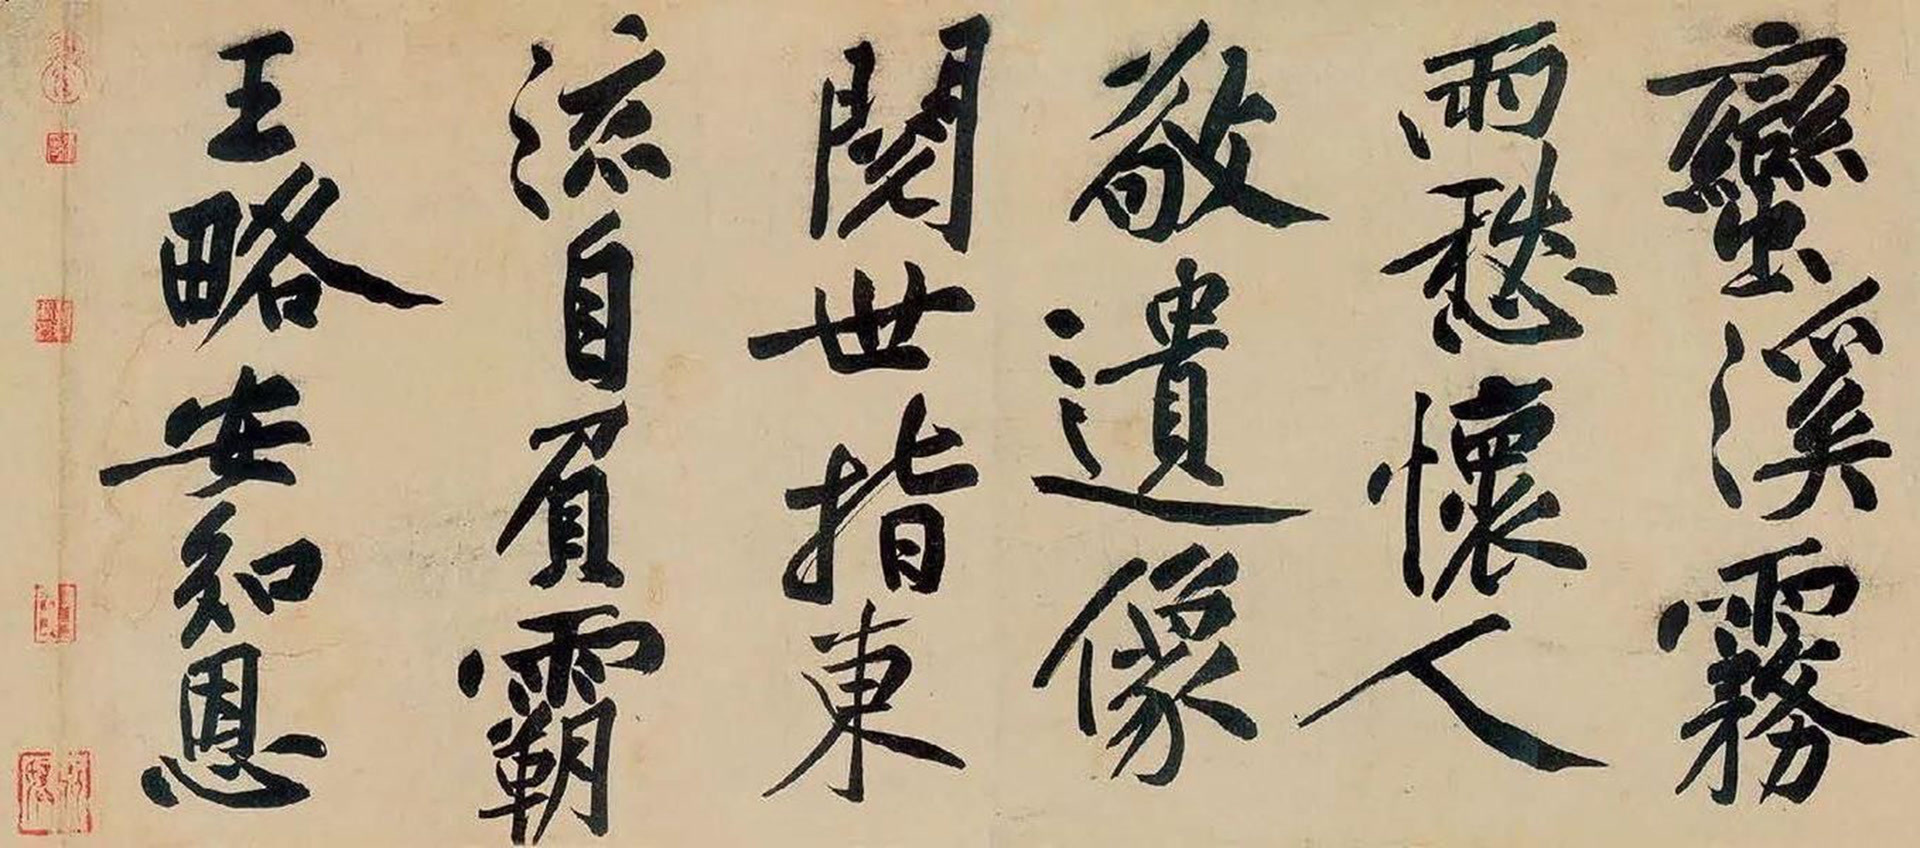 蠻溪霧
雨愁懷人
敬遺像
閱世指東
流自負霸
王略安知恩